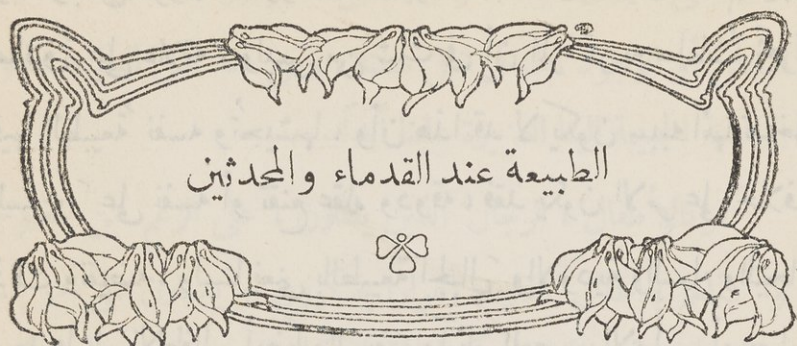 الطبيعة عند القدماء والمحدثين